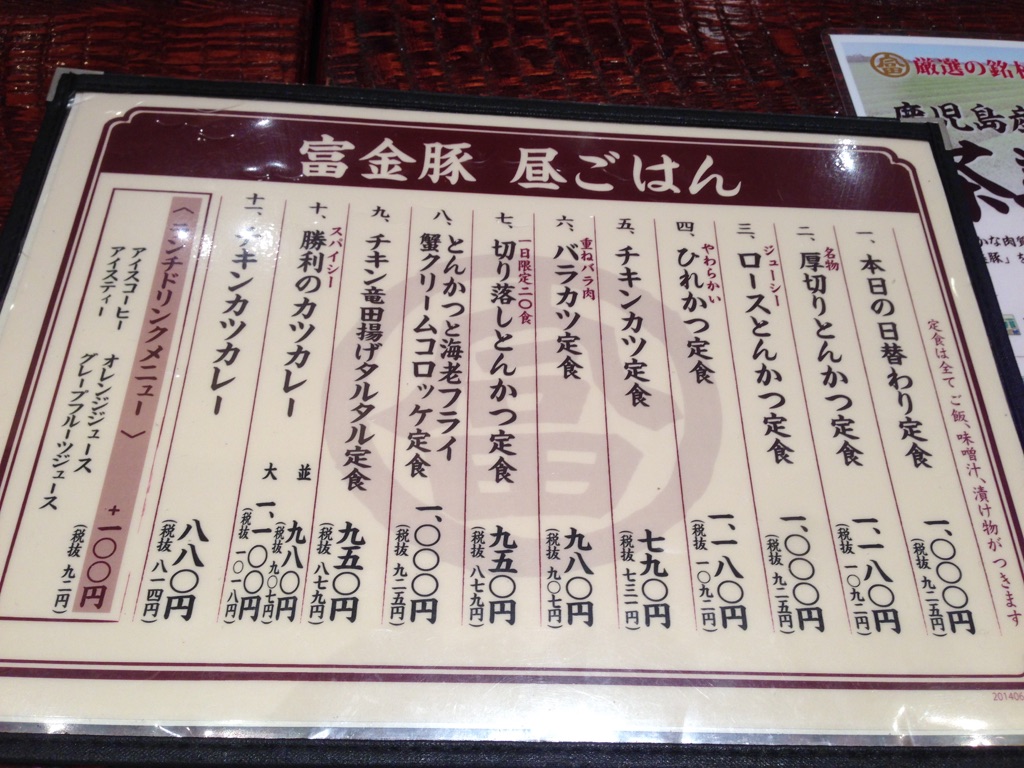 富金豚 昼ごはん
定食は全て ご飯、味噌汁、漬け物が つきます
一、本日の日替わり定食 一、〇〇〇円
(税抜 九二五円)
名物
二、厚切りとんかつ定食 一、一八〇円
(税抜 一〇九二円)
ジューシー
三、ロースとんかつ定食 一、〇〇〇円
(税抜 九二五円)
やわらかい
四、ひれかつ定食 一、一八〇円
(税抜 一〇九二円)
五、チキンカツ定食 七九〇円
(税抜 七三一円)
重ねバラ肉
六、バラカツ定食 九八〇円
(税抜 九〇七円)
一日限定二〇食
七、切り落しとんかつ定食 九五〇円
(税抜 八七九円)
八、とんかつと海老フライ
蟹クリームコロッケ定食 一、〇〇〇円
(税抜 九二五円)
九、チキン竜田揚げタルタル定食 九五〇円
(税抜 八七九円)
スパイシー
十、勝利のカツカレー 並 九八〇円
(税抜 九〇七円)
大 一、一〇〇円
(税抜 一〇一八円)
十一、チキンカツカレー 八八〇円
(税抜 八一四円)
〈ランチドリンクメニュー〉 +一〇〇円
(税抜 九二円)
アイスコーヒー オレンジジュース
アイスティー グレープフルーツジュース
201406
富
厳選の銘柄
鹿児島産
茶